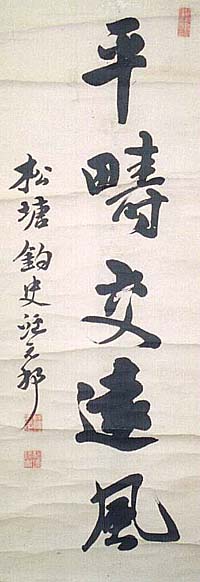 平疇交遠風
松塘釣史鱸元邦